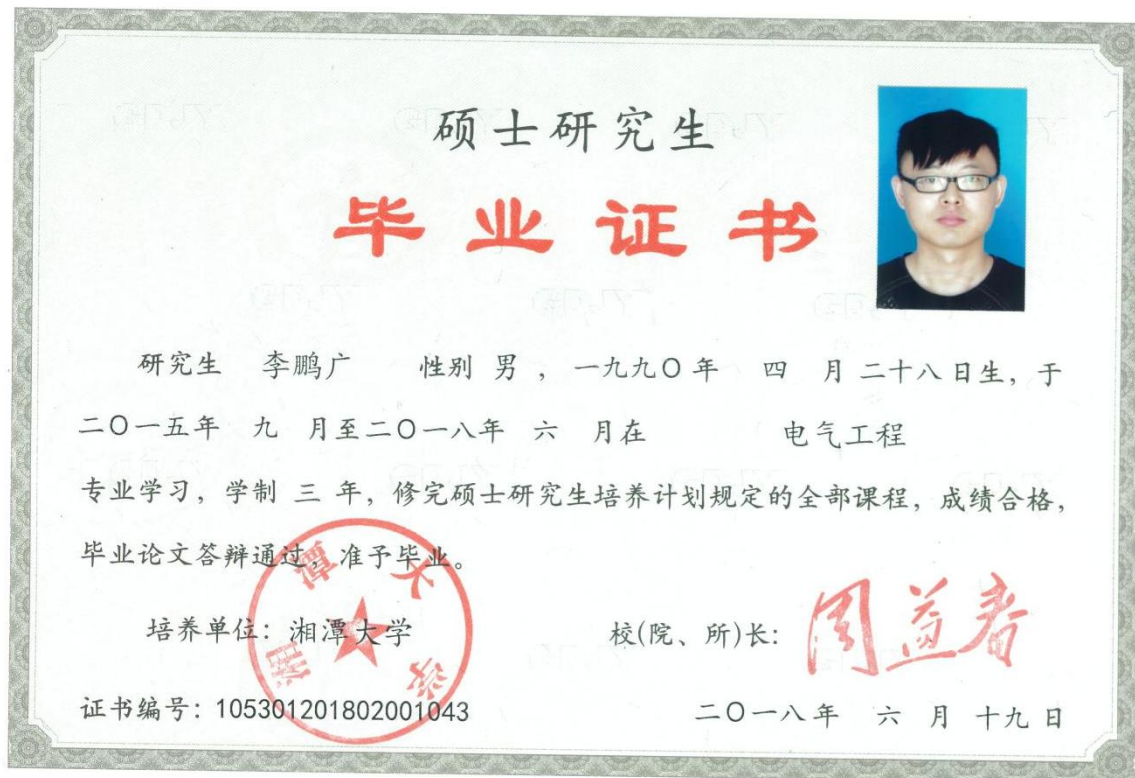 硕士研究生
毕业证书
研究生 李鹏广 性别 男 ，一九九〇年 四 月二十八日生，于
二〇一五年 九 月至二〇一八年 六 月在 电气工程
专业学习，学制 三 年，修完硕士研究生培养计划规定的全部课程，成绩合格，
毕业论文答辩通过，准予毕业。
培养单位：湘潭大学 校(院、所)长：周益春
湘潭大学
证书编号：105301201802001043 二〇一八年 六 月 十九 日